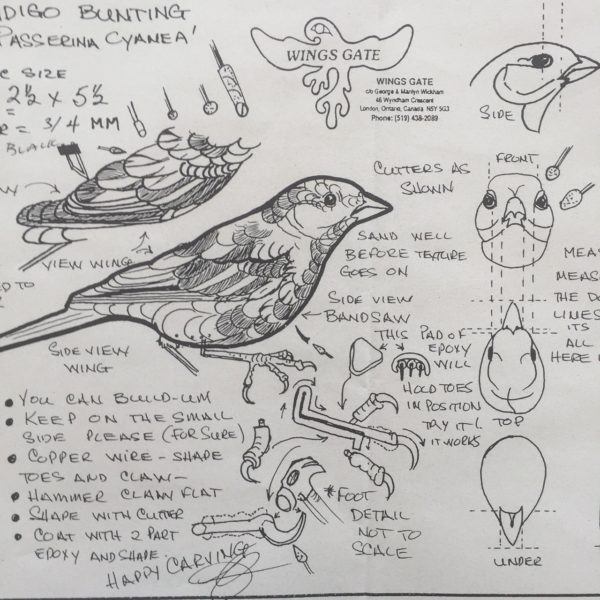 DIGO BUNTING
PASSERINA CYANEA'
SIZE
2½ x 5½
= 3/4 MM
BLACK
WINGS GATE
WINGS GATE
c/o George & Marilyn Wickham
46 Wyndham Crescent
London, Ontario, Canada N5Y 5G3
Phone: (519) 438-2089
SIDE
CUTTERS AS
SHOWN
FRONT
VIEW WING
SAND WELL
BEFORE TEXTURE
GOES ON
SIDE VIEW
BANDSAW
MEA
MEAS
THE DO
LINES
ITS
ALL
HERE
SIDE VIEW
WING
THIS PAD OF
EPOXY
WILL
HOLD TOES
IN POSITION
TRY IT
IT WORKS
TOP
• YOU CAN BUILD-UM
• KEEP ON THE SMALL
SIDE PLEASE (FOR SURE)
• COPPER WIRE - SHAPE
TOES AND CLAW -
• HAMMER CLAW FLAT
• SHAPE WITH CUTTER
• COAT WITH 2 PART
EPOXY AND SHAPE
*FOOT
DETAIL
NOT TO
SCALE
HAPPY CARVING
UNDER